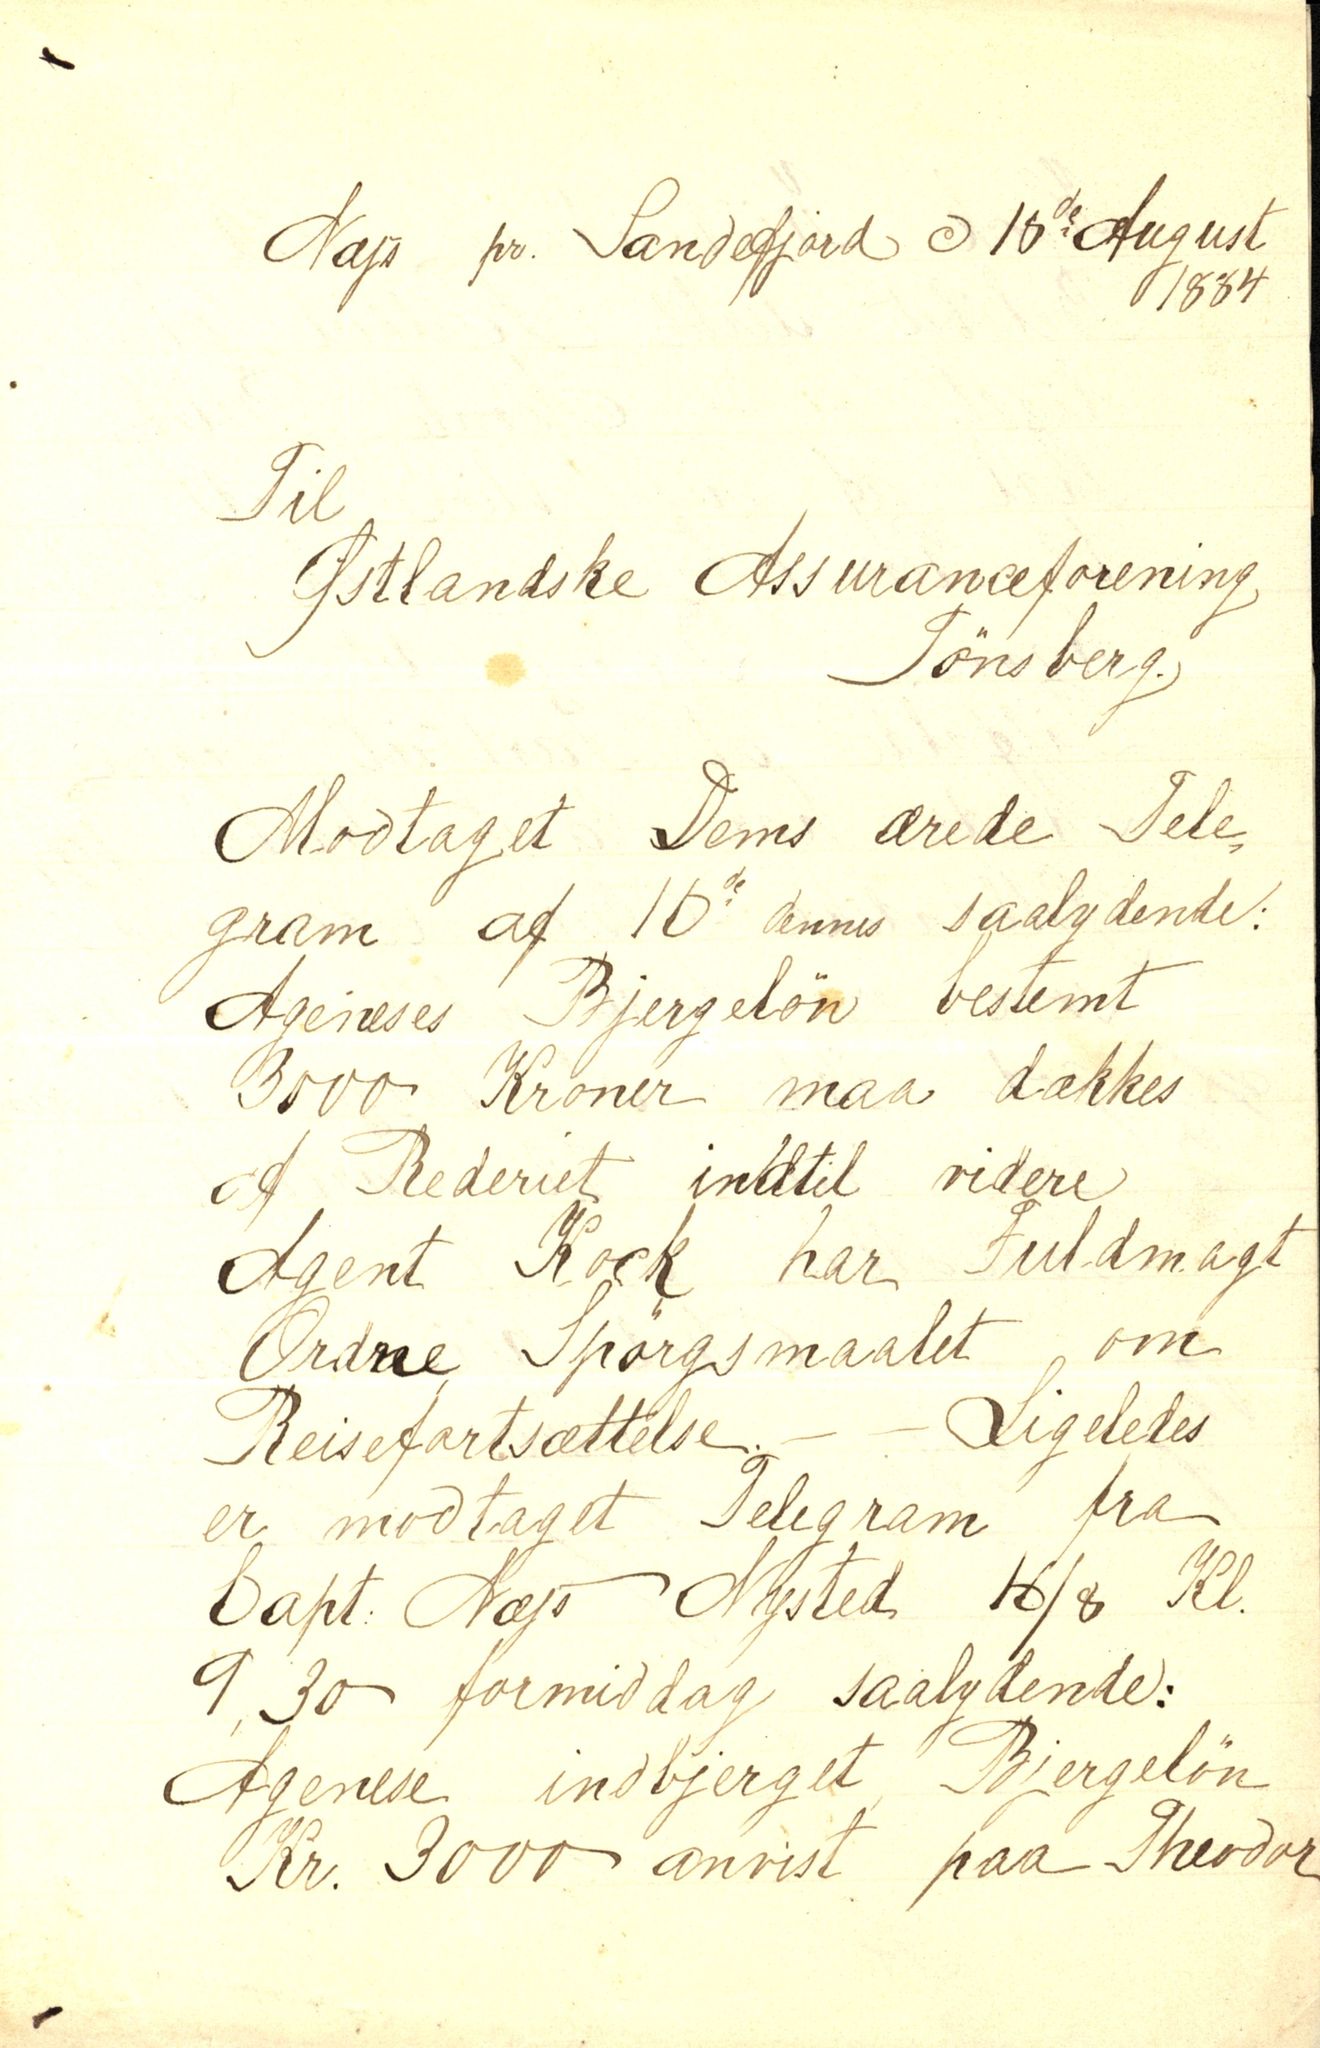 Næss pr. Sandefjord d 18de August
1884
Til
Østlandske Assuranceforening
Tönsberg.
Modtaget Dems ærede Tele-
gram af 16de dennes saalydende:
Ageneses Bjergelön bestemt
3000 Kroner maa dækkes
af Rederiet indtil videre
Agent Kock har Fuldmagt
Ordne Spörgsmaalet om
Reisefortsættelse. — — Ligeledes
er modtaget Telegram fra
Capt: Næss Nysted 16/8 Kl.
9,30 formiddag saalydende:
Agenese indbjerget, Bjergelön
Kr. 3000 anvist paa Theodor